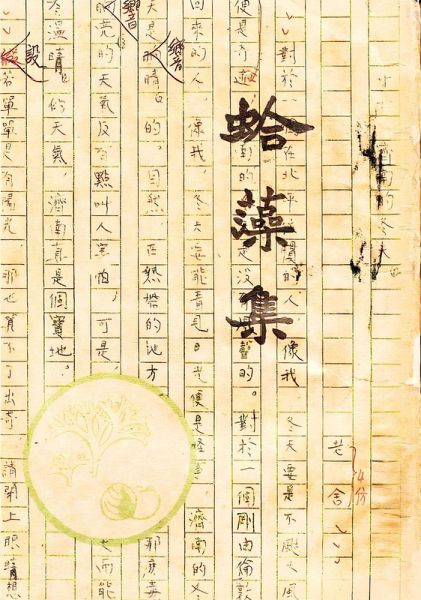 濟南的冬天
老舍
4份
對於一個在北平住慣的人，像我，冬天要是不颳大風
便是奇蹟；濟南的是沒風聲的。對於一個剛由倫敦
蛤藻集
回來的人，像我，冬天要能看見日光便是怪事；濟南的冬
響
天是響晴的。自然，在熱帶的地方，那麼毒
響
亮的天氣反有點叫人害怕。可是，而能
溫晴的天氣，濟南真是個寶地。
設
若單單是有陽光，那也算不了出奇。請閉上眼睛想